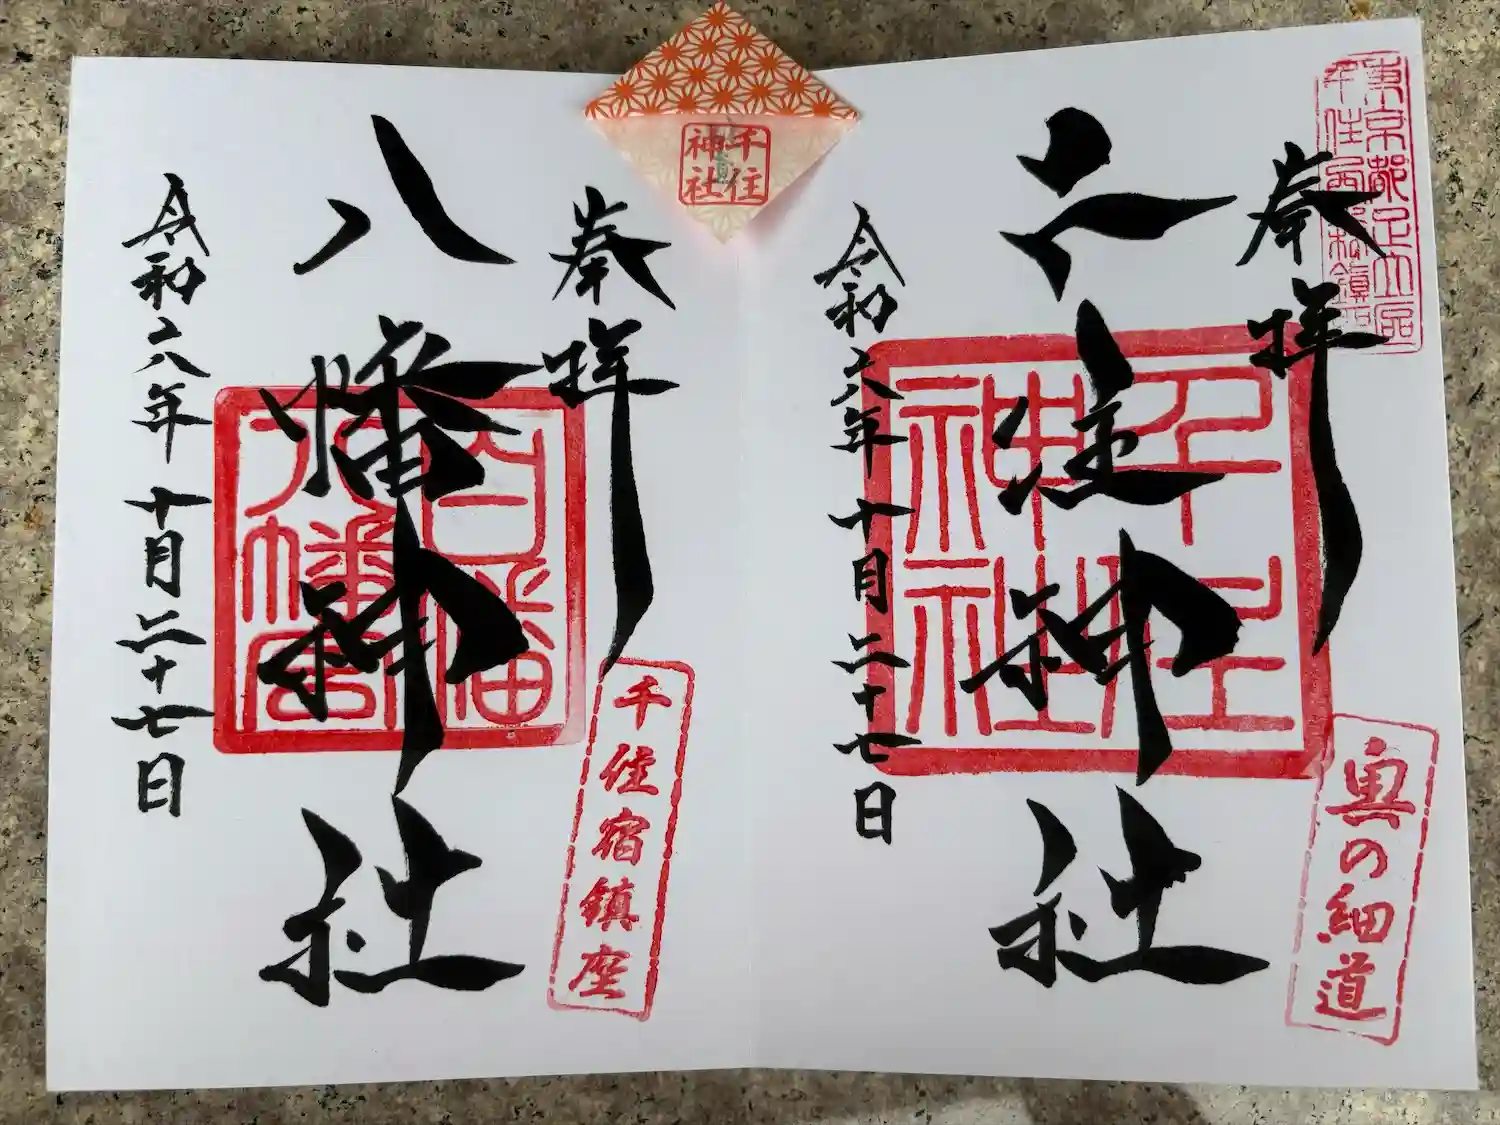 千住
神社
東京都足立区
千住西森鎮座
奉拝
千住神社
千住
神社
令和六年 十月二十七日
奥の細道
奉拝
八幡神社
白幡
八幡宮
令和六年 十月二十七日
千住宿鎮座